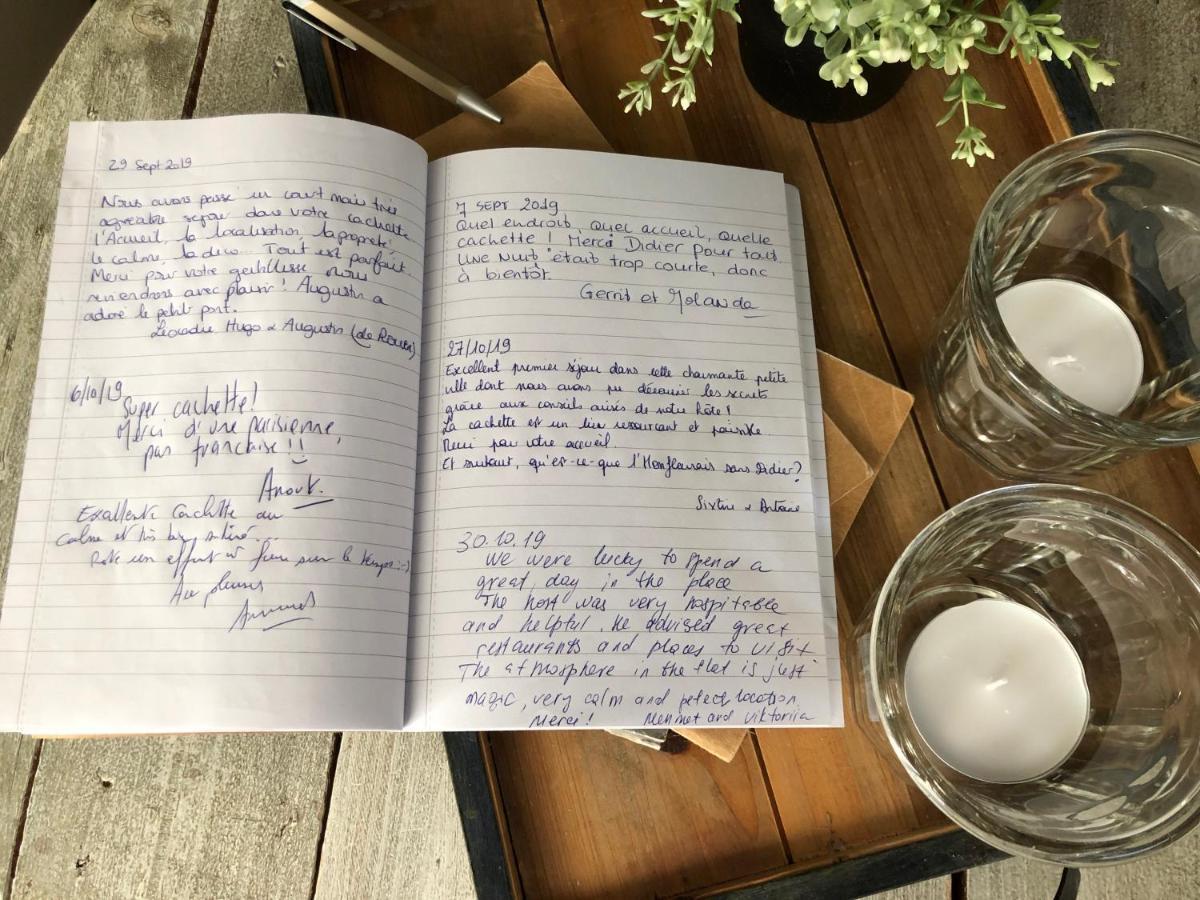 29 Sept 2019
Nous avons passé un court mais très
agréable séjour dans votre cachette
l'Accueil, la localisation, la propreté
le calme, la déco... Tout est parfait.
Merci pour votre gentillesse nous
reviendrons avec plaisir! Augustin a
adoré le petit port.
Léocadie Hugo & Augustin (de Rouen)
6/10/19
Super cachette!
Merci d'une parisienne,
pas franchise!!
Anouk.
Excellente cachette au
calme et très bien situé.
un effort à faire sur le temps :-)
Au plaisir
7 SEPT 2019
Quel endroit, quel accueil, quelle
cachette! Merci Didier pour tout,
une nuit était trop courte, donc
à bientôt.
Gerrit et Yolande
27/10/19
Excellent premier séjour dans cette charmante petite
ville dont nous avons pu découvrir les secrets
grâce aux conseils avisés de notre hôte!
La cachette est un lieu ressourçant et paisible.
Merci pour votre accueil.
Et surtout, qu'est-ce-que l'Honfleurais sans Didier?
Sixtine & Antoine
30.10.19
We were lucky to spend a
great day in the place
The host was very hospitable
and helpful. He advised great
restaurants and places to visit
The atmosphere in the flat is just
magic, very calm and pefect location
Merci! Mehmet and Viktoriia